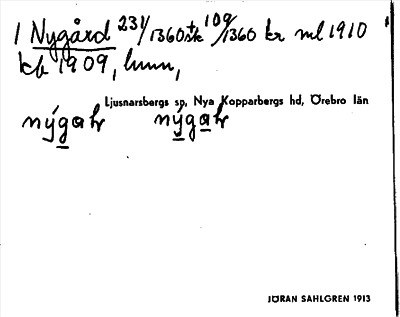 1 Nygård 231/1360 stk 109/1360 kr ml 1910
kb 1909, hmn,
Ljusnarsbergs sp, Nya Kopparbergs hd, Örebro län
nýgaḥr nýgaḥr
JÖRAN SAHLGREN 1913